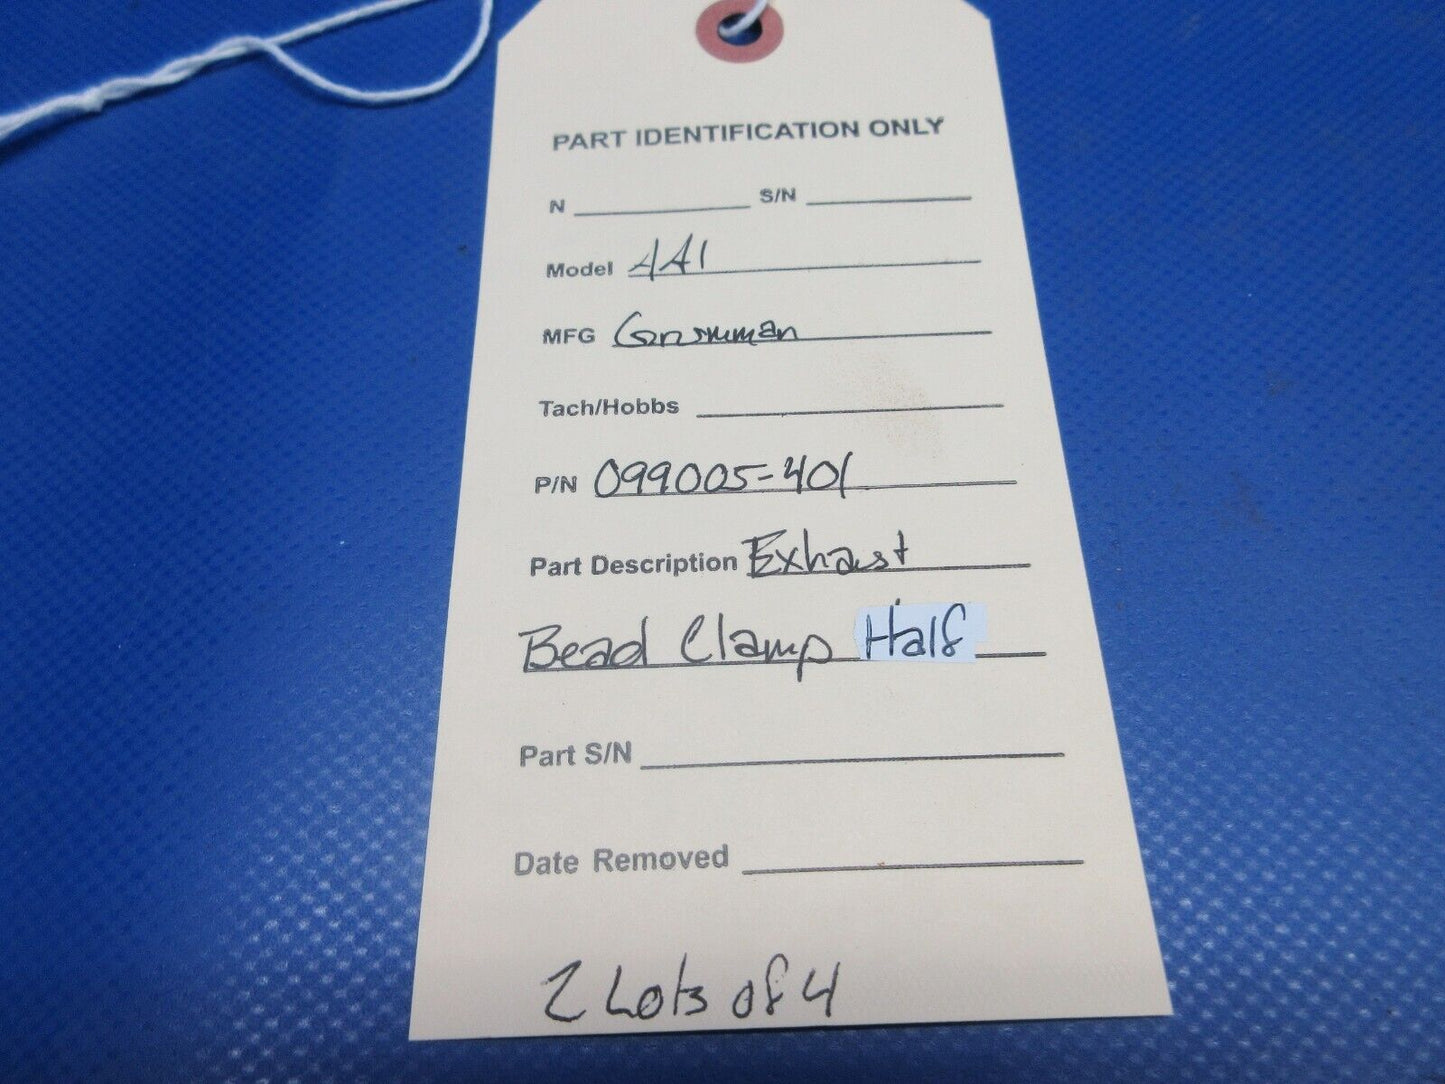 PART IDENTIFICATION ONLY
N S/N
Model AA1
MFG Grumman
Tach/Hobbs
P/N 099005-401
Part Description Exhaust
Bead Clamp Half
Part S/N
Date Removed
2 Lots of 4